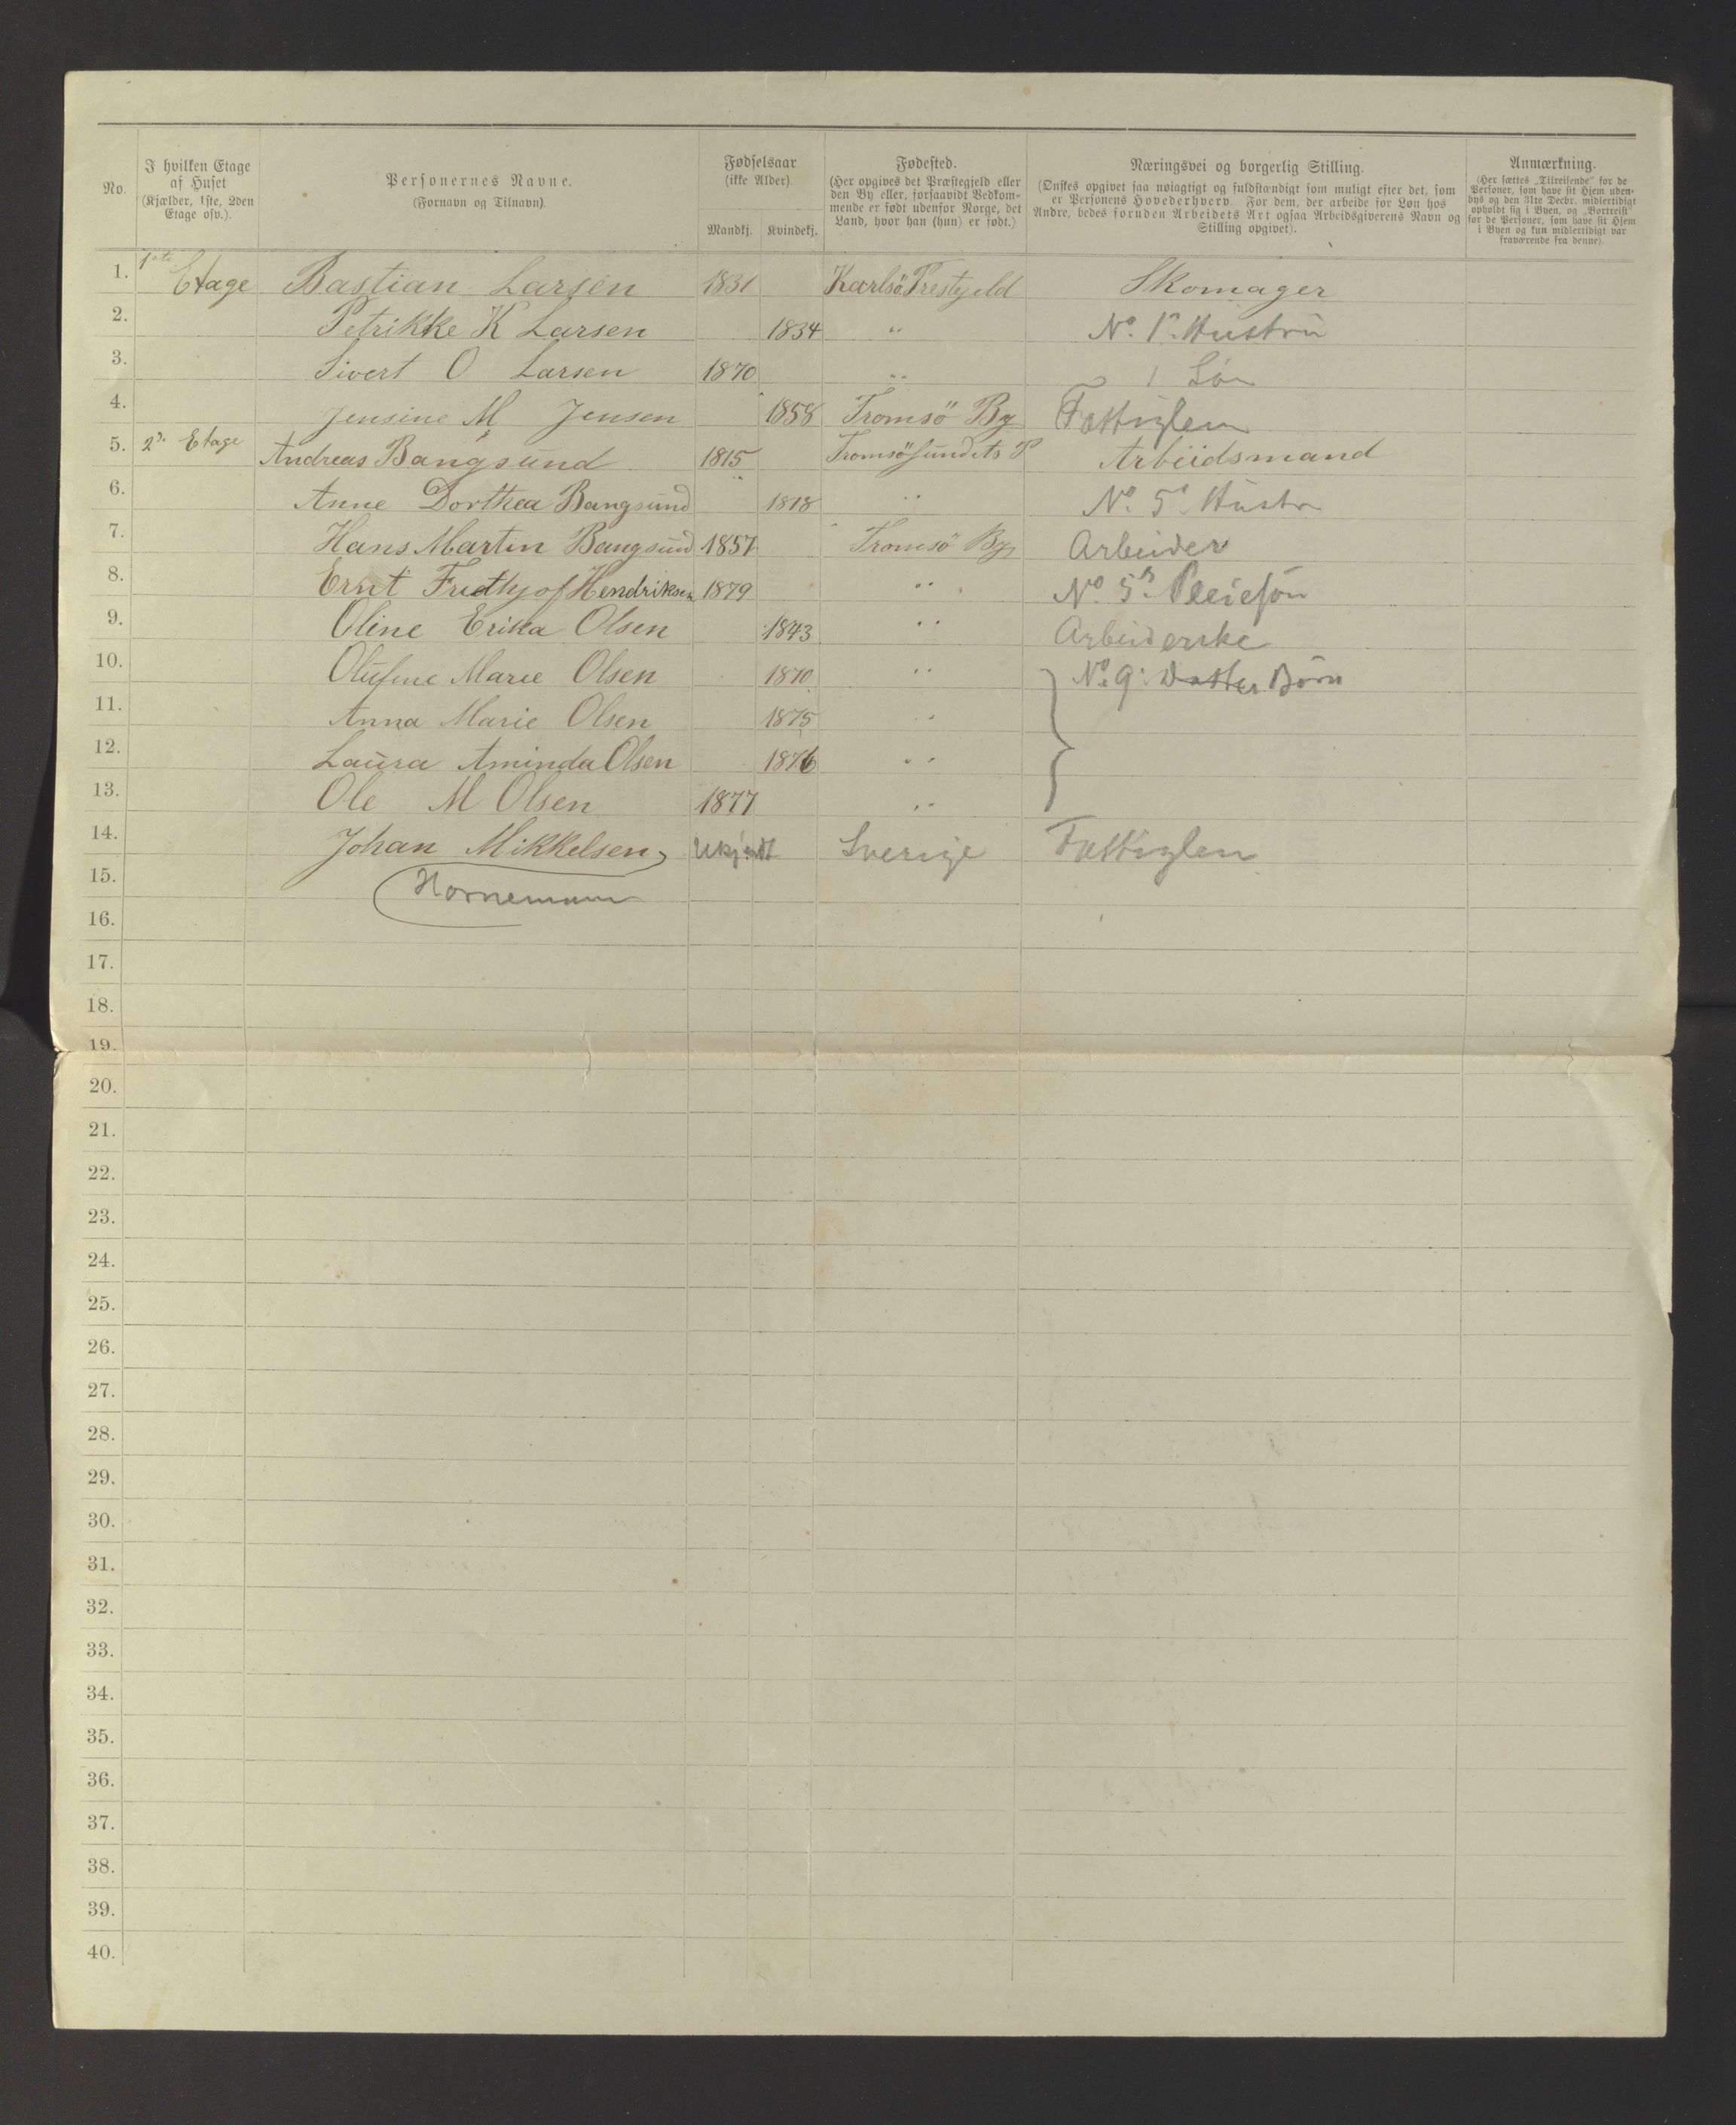 No.
I hvilken Etage
af Huset
(Kjælder, 1ste, 2den
Etage osv.).
Personernes Navne.
(Fornavn og Tilnavn).
Fødselsaar
(ikke Alder).
Mandkj. Kvindekj.
Fødested.
(Her opgives det Præstegjeld eller
den By eller, forsaavidt Vedkom-
mende er født udenfor Norge, det
Land, hvor han (hun) er født.)
Næringsvei og borgerlig Stilling.
(Ønskes opgivet saa nøiagtigt og fuldstændigt som muligt efter det, som
er Personens Hovederhverv. For dem, der arbeide for Løn hos
Andre, bedes foruden Arbeidets Art ogsaa Arbeidsgiverens Navn og
Stilling opgivet).
Anmærkning.
(Her sættes „Tilreisende" for de
Personer, som have sit Hjem uden-
bys og den 31te Decbr. midlertidigt
opholdt sig i Byen, og „Bortreist"
for de Personer, som have sit Hjem
i Byen og kun midlertidigt var
fraværende fra denne).
1. 1ste Etage Bastian Larsen 1831 Karlsö Prestgjeld Skomager
2. Petrikke K Larsen 1834 " No. 1s Hustrü
3. Sivert O Larsen 1870 " 1 Søn
4. Jensine M Jensen 1858 Tromsö By Fattiglem
5. 2n Etage Andreas Bangsünd 1815 Tromsösündets P Arbeidsmand
6. Anne Dorthea Bangsünd 1818 " No. 5s Hüstr
7. Hans Martin Bangsünd 1857 Tromsö By Arbeider
8. Ernt Fridthjof Hendriksen 1879 " No. 5s Pleiesön
9. Oline Erika Olsen 1843 " Arbeiderske
10. Olüfine Marie Olsen 1870 " No. 9s Datter Börn
11. Anna Marie Olsen 1875 "
12. Laüra Aminda Olsen 1876 "
13. Ole M Olsen 1877 "
14. Johan Mikkelsen Ukjendt Sverige Fattiglem
15. Hornemann
16.
17.
18.
19.
20.
21.
22.
23.
24.
25.
26.
27.
28.
29.
30.
31.
32.
33.
34.
35.
36.
37.
38.
39.
40.